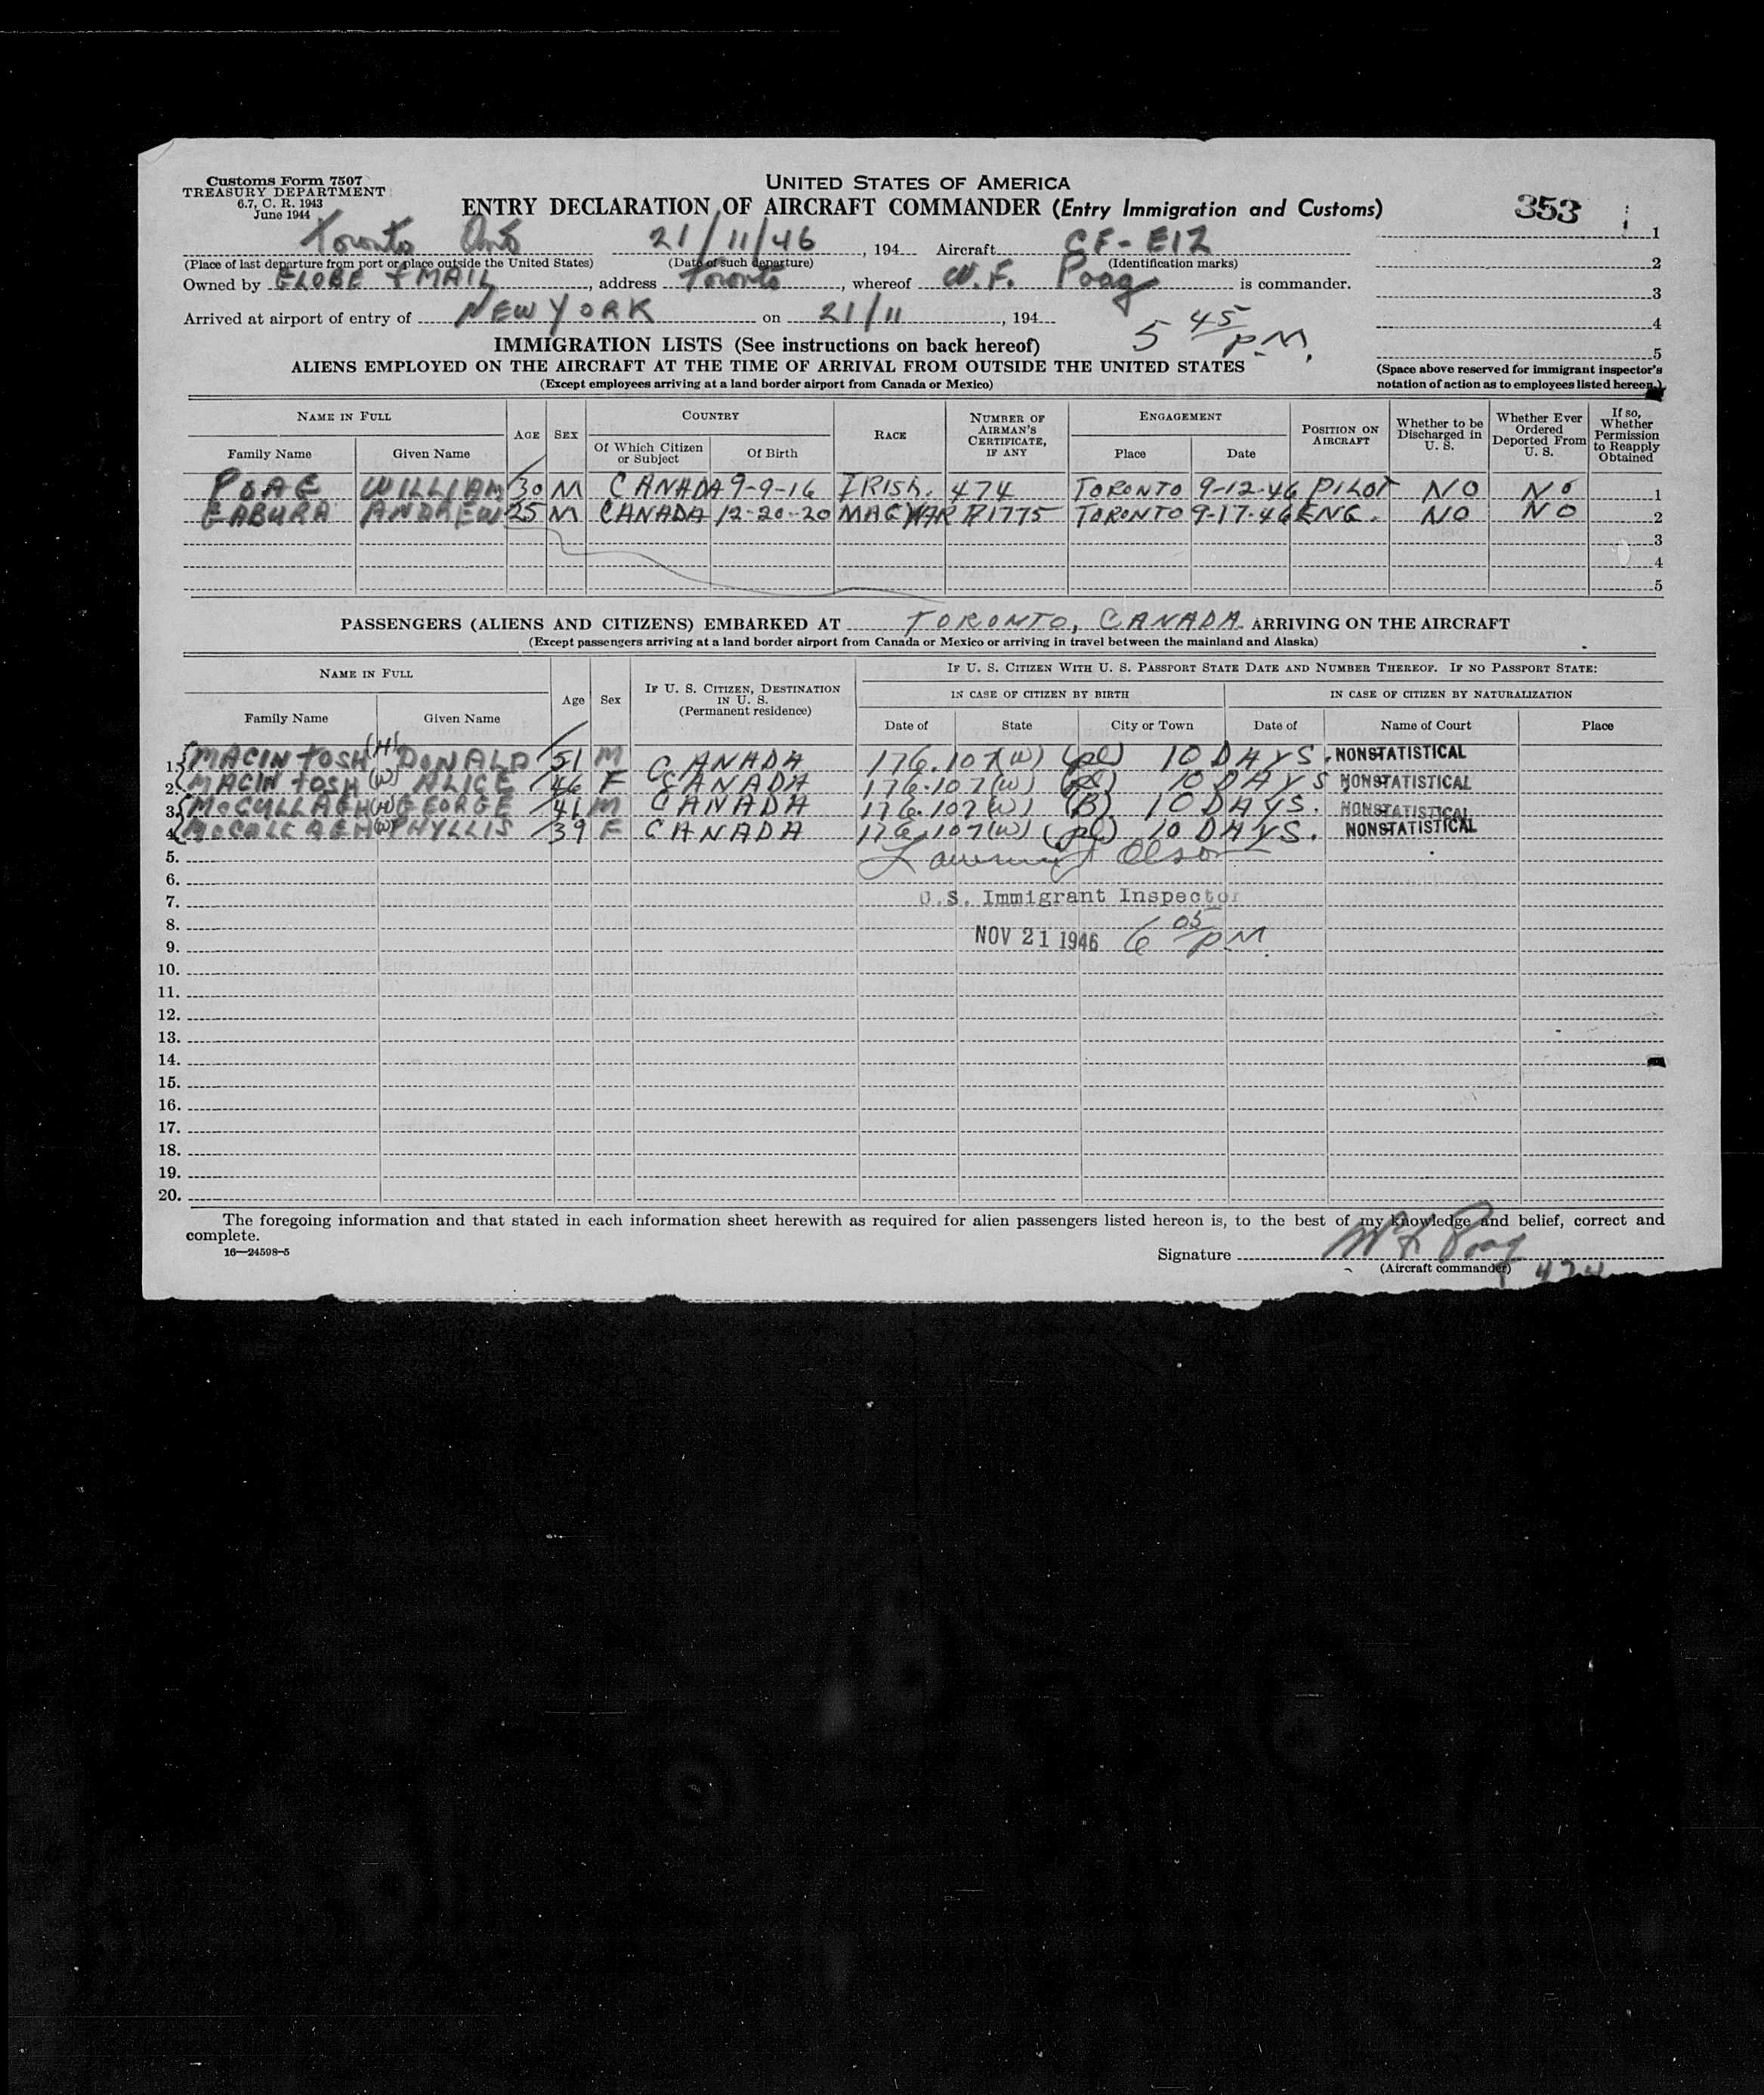 Customs Form 7507
TREASURY DEPARTMENT
6.7, C. R. 1943
June 1944
UNITED STATES OF AMERICA
ENTRY DECLARATION OF AIRCRAFT COMMANDER (Entry Immigration and Customs)
353
Toronto Ont 21/11/46, 194 Aircraft CF-EIZ
1
(Place of last departure from port or place outside the United States) (Date of such departure) (Identification marks)
2
Owned by GLOBE & MAIL, address Toronto, whereof W.F. Poag is commander.
3
Arrived at airport of entry of NEW YORK on 21/11, 194
4
5 45 P.M.
IMMIGRATION LISTS (See instructions on back hereof)
5
ALIENS EMPLOYED ON THE AIRCRAFT AT THE TIME OF ARRIVAL FROM OUTSIDE THE UNITED STATES
(Except employees arriving at a land border airport from Canada or Mexico)
(Space above reserved for immigrant inspector's
notation of action as to employees listed hereon.)
NAME IN FULL AGE SEX COUNTRY RACE NUMBER OF AIRMAN'S CERTIFICATE, IF ANY ENGAGEMENT POSITION ON AIRCRAFT Whether to be Discharged in U. S. Whether Ever Ordered Deported From U. S. If so, Whether Permission to Reapply Obtained
Family Name Given Name Of Which Citizen or Subject Of Birth Place Date
POAG WILLIAM 30 M CANADA 9-9-16 IRISH. 474 TORONTO 9-12-46 PILOT NO NO 1
GABURA ANDREW 25 M CANADA 12-20-20 MAGYAR R1775 TORONTO 9-17-46 ENG. NO NO 2
3
4
5
PASSENGERS (ALIENS AND CITIZENS) EMBARKED AT TORONTO, CANADA ARRIVING ON THE AIRCRAFT
(Except passengers arriving at a land border airport from Canada or Mexico or arriving in travel between the mainland and Alaska)
NAME IN FULL Age Sex IF U. S. CITIZEN, DESTINATION IN U. S. (Permanent residence) IF U. S. CITIZEN WITH U. S. PASSPORT STATE DATE AND NUMBER THEREOF. IF NO PASSPORT STATE:
IN CASE OF CITIZEN BY BIRTH IN CASE OF CITIZEN BY NATURALIZATION
Family Name Given Name Date of State City or Town Date of Name of Court Place
1. MACINTOSH (H) DONALD 51 M CANADA 176.107(W) (pl) 10 DAYS. NONSTATISTICAL
2. MACINTOSH (W) ALICE 46 F CANADA 176.107(W) (pl) 10 DAYS NONSTATISTICAL
3. McCULLAGH (H) GEORGE 41 M CANADA 176.107(W) (B) 10 DAYS. NONSTATISTICAL
4. McCULLAGH (W) PHYLLIS 39 F CANADA 176.107(W) (pl) 10 DAYS. NONSTATISTICAL
5. Olson
6.
7. U.S. Immigrant Inspector
8.
9. NOV 21 1946 6 05 PM.
10.
11.
12.
13.
14.
15.
16.
17.
18.
19.
20.
The foregoing information and that stated in each information sheet herewith as required for alien passengers listed hereon is, to the best of my knowledge and belief, correct and
complete.
16—24598-5
Signature W F Poag
(Aircraft commander) 474